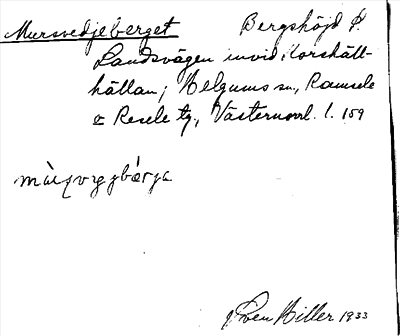 Mursvedjeberget Bergshöjd P.
Landsvägen invid Korshäll-
hällan; Helgums sn, Ramsele
o Resele tg, Västernorrl. l. 159
Hiller 1933